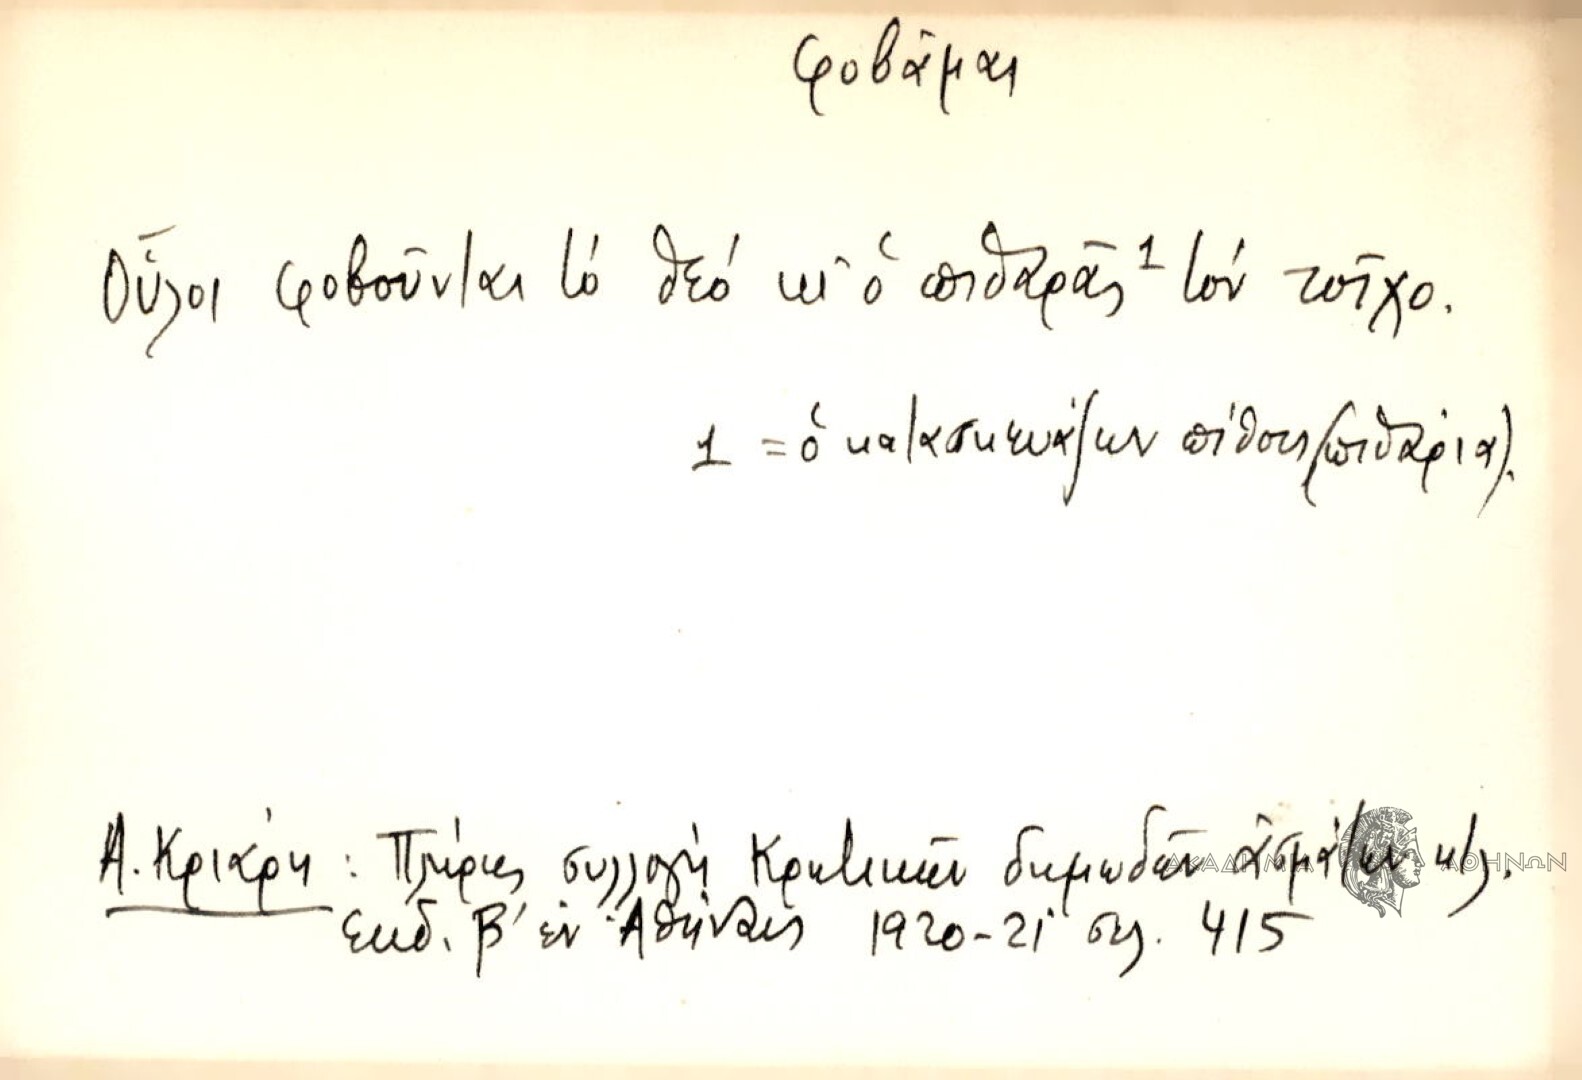 φοβᾶμαι
Οὖλοι φοβοῦνται τό θεό κι ὁ πιθαρᾶς 1 τόν τοῖχο.
1 = ὁ κατασκευάζων πίθους (πιθάρια).
Α. Κριάρη : Πλήρης συλλογή Κρητικῶν δημωδῶν ἀσμάτων κτλ.
ἐκδ. Β΄ ἐν Ἀθήναις 1920-21 σελ. 415
ΑΚΑΔΗΜΙΑ ΑΘΗΝΩΝ